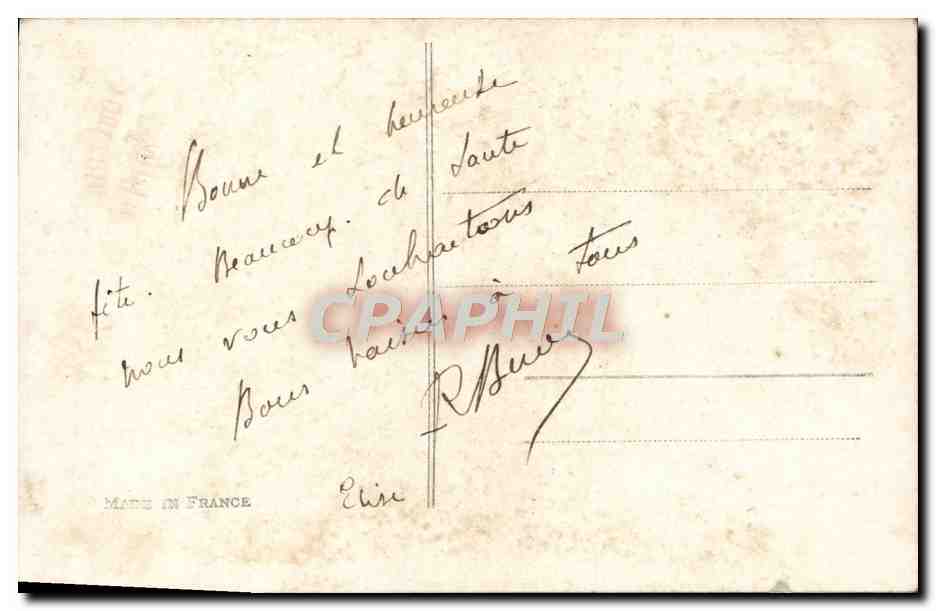 Bonne et heureuse
fête. Beaucoup. de Santé
nous vous souhaitons
Bons baisers à tous
Elise
MADE IN FRANCE
CPAPHIL